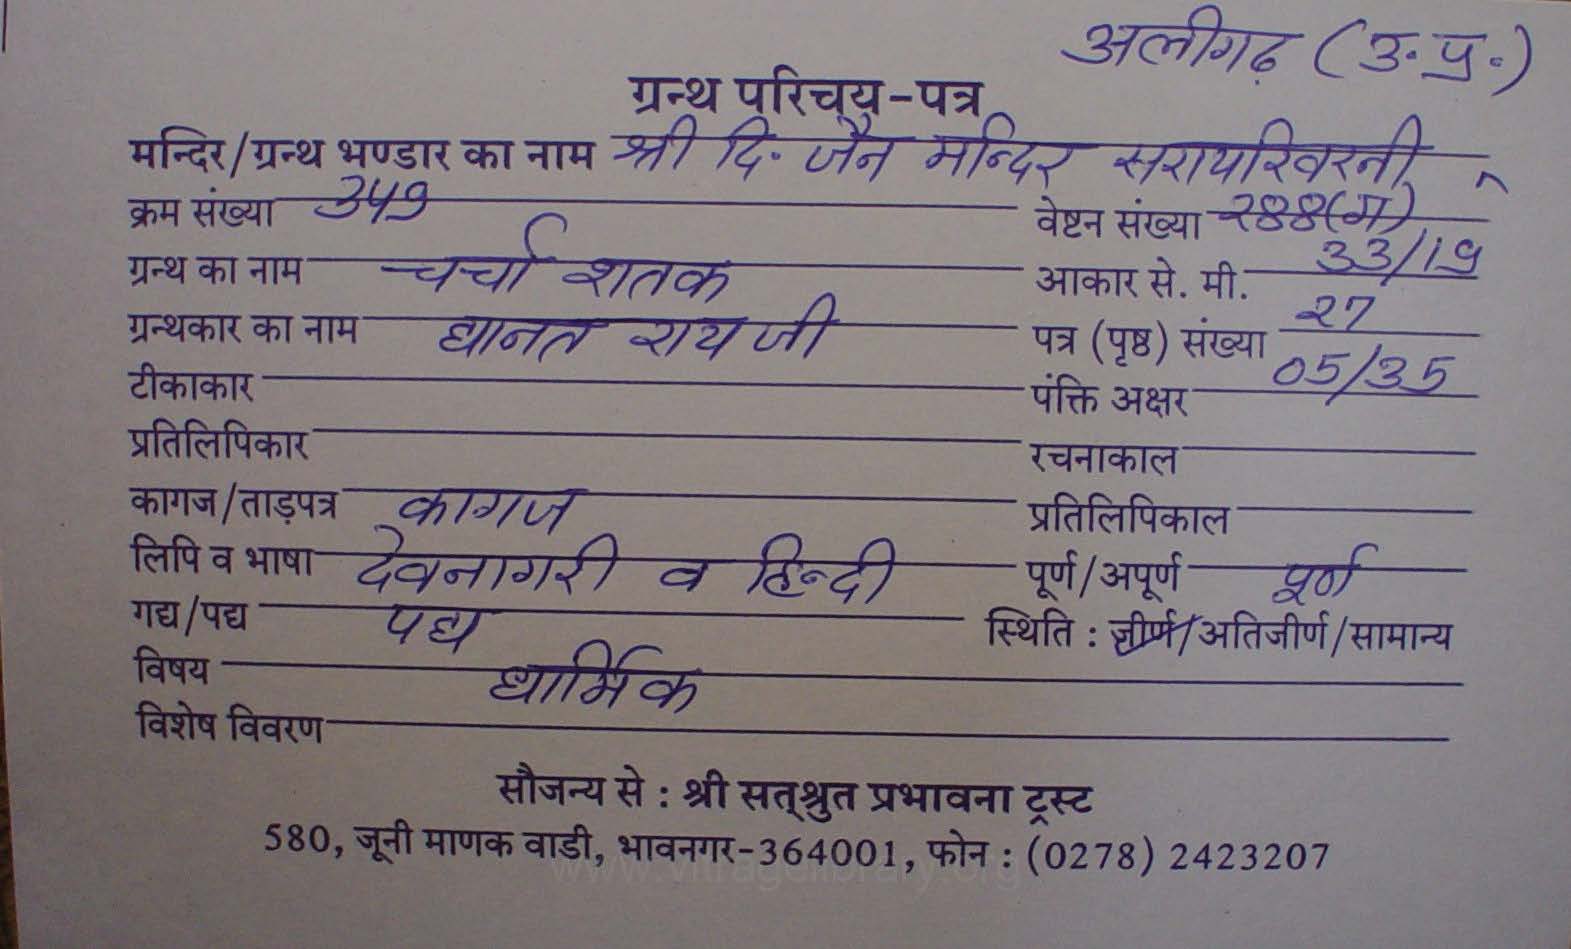 अलीगढ़ (उ.प्र.)
ग्रन्थ परिचय-पत्र
मन्दिर/ग्रन्थ भण्डार का नाम श्री दि. जैन मन्दिर सरायखिरनी
क्रम संख्या वेष्टन संख्या २४४(ग)
ग्रन्थ का नाम चर्चा शतक आकार से. मी. 33/19
ग्रन्थकार का नाम द्यानत राय जी पत्र (पृष्ठ) संख्या २7
टीकाकार पंक्ति अक्षर 05/35
प्रतिलिपिकार रचनाकाल
कागज/ताड़पत्र कागज प्रतिलिपिकाल
लिपि व भाषा देवनागरी व हिन्दी पूर्ण/अपूर्ण पूर्ण
गद्य/पद्य पद्य स्थिति : जीर्ण/अतिजीर्ण/सामान्य
विषय धार्मिक
विशेष विवरण
सौजन्य से : श्री सत्श्रुत प्रभावना ट्रस्ट
580, जूनी माणक वाडी, भावनगर-364001, फोन : (0278) 2423207
www.vitragelibrary.org